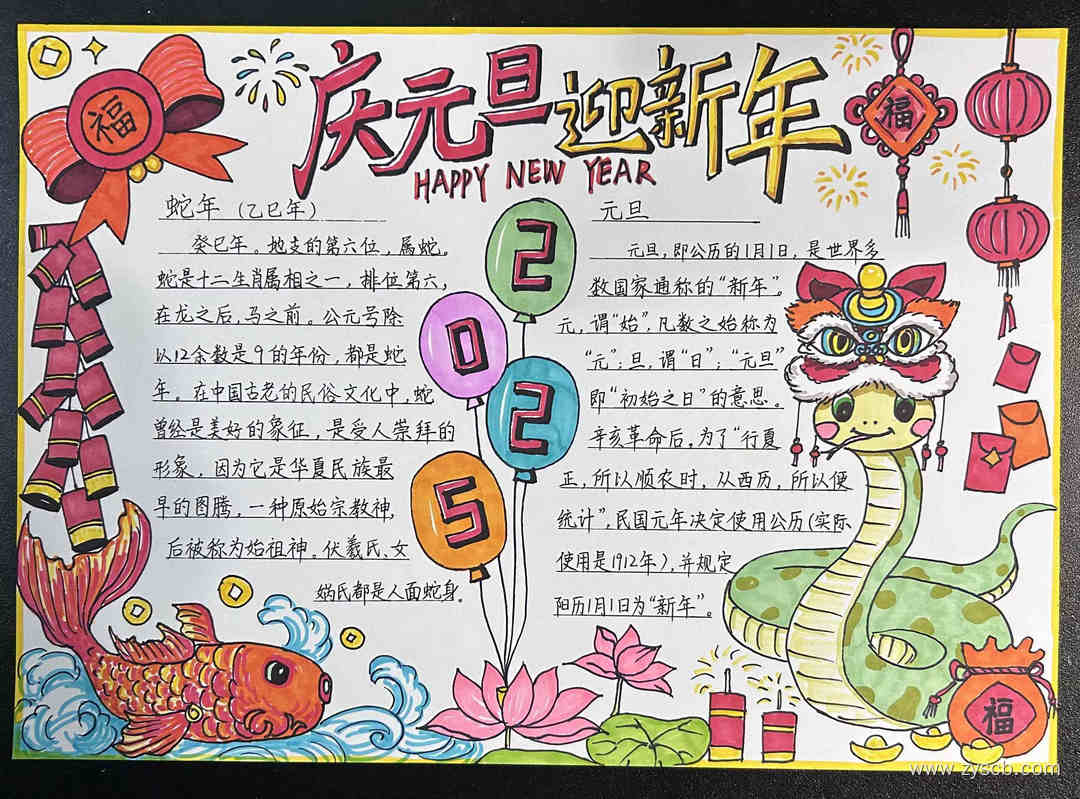 福
庆元旦迎新年
HAPPY NEW YEAR
福
蛇年（乙巳年）
癸巳年。地支的第六位，属蛇。
蛇是十二生肖属相之一，排位第六，
在龙之后，马之前。公元号除
以12余数是9的年份，都是蛇
年。在中国古老的民俗文化中，蛇
曾经是美好的象征，是受人崇拜的
形象。因为它是华夏民族最
早的图腾，一种原始宗教神，
后被称为始祖神。伏羲氏、女
娲氏都是人面蛇身。
2
0
2
5
元旦
元旦，即公历的1月1日，是世界多
数国家通称的“新年”。
元，谓“始”，凡数之始称为
“元”；旦，谓“日”；“元旦”
即“初始之日”的意思。
辛亥革命后，为了“行夏
正，所以顺农时，从西历，所以便
统计”，民国元年决定使用公历(实际
使用是1912年)，并规定
阳历1月1日为“新年”。
福
www.zyscb.com